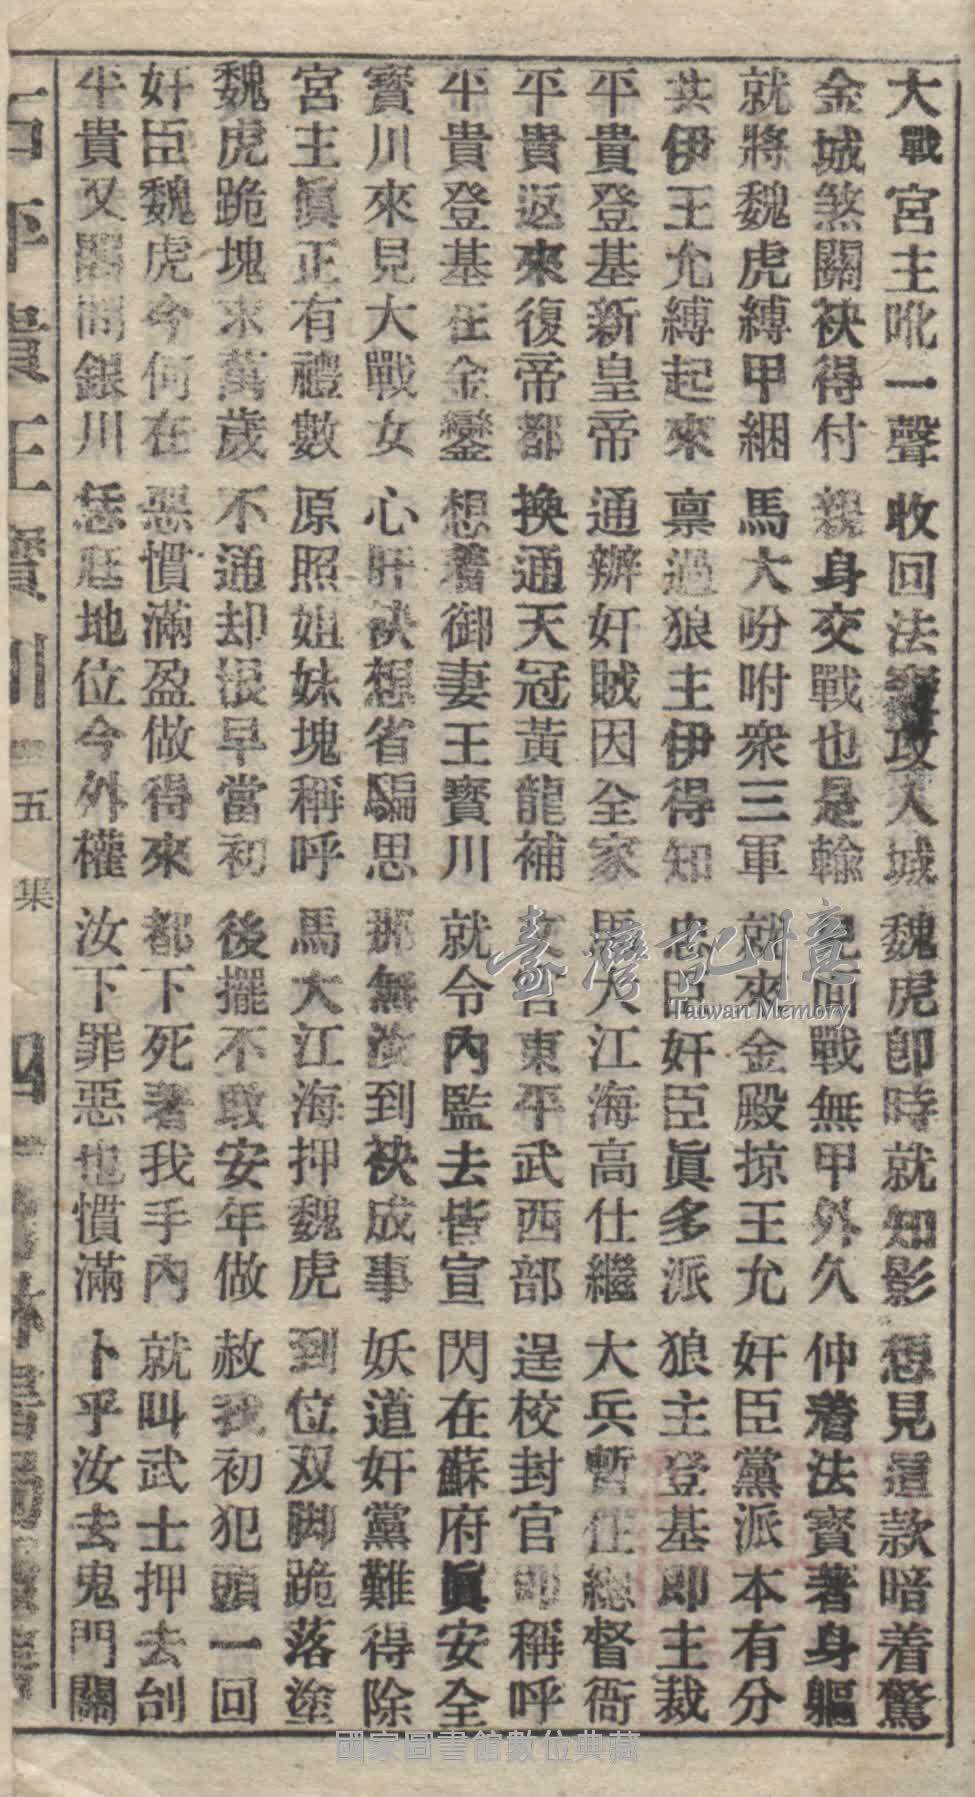 大戰宮主吪一聲 收回法寶攻入城 魏虎卽時就知影 想見這款暗着驚
金城煞關袂得付 親身交戰也是輸 兄回戰無甲外久 仲着法寶著身軀
就將魏虎縛甲綑 馬大吩咐衆三軍 就來金殿掠王允 奸臣黨派本有分
共伊王允縛起來 禀過狼主伊得知 忠臣奸臣眞多派 狼主登基即主裁
平貴登基新皇帝 通辦奸賊因全家 馬大江海高仕繼 大兵暫住總督衙
平貴返來復帝都 換通天冠黃龍補 文官東平武西部 逞校封官卽稱呼
平貴登基在金鑾 想着御妻王寶川 就令內監去皆宣 閃在蘇府眞安全
寶川來見大戰女 心肝袂想省騙思 那無汝到袂成事 妖道奸黨難得除
宮主眞正有禮數 原照姐妹塊稱呼 馬大江海押魏虎 到位双脚跪落塗
魏虎跪塊求萬歲 不通却恨早當初 後擺不敢安年做 赦我初犯頭一回
奸臣魏虎今何在 惡慣滿盈做得來 都下死著我手內 就叫武士押去刣
平貴又閣問銀川 恁尫地位今外權 汝下罪惡也慣滿 卜乎汝去鬼門關
石平貴王寶川 五集 四
國家圖書館數位典藏
臺灣記憶
Taiwan Memory